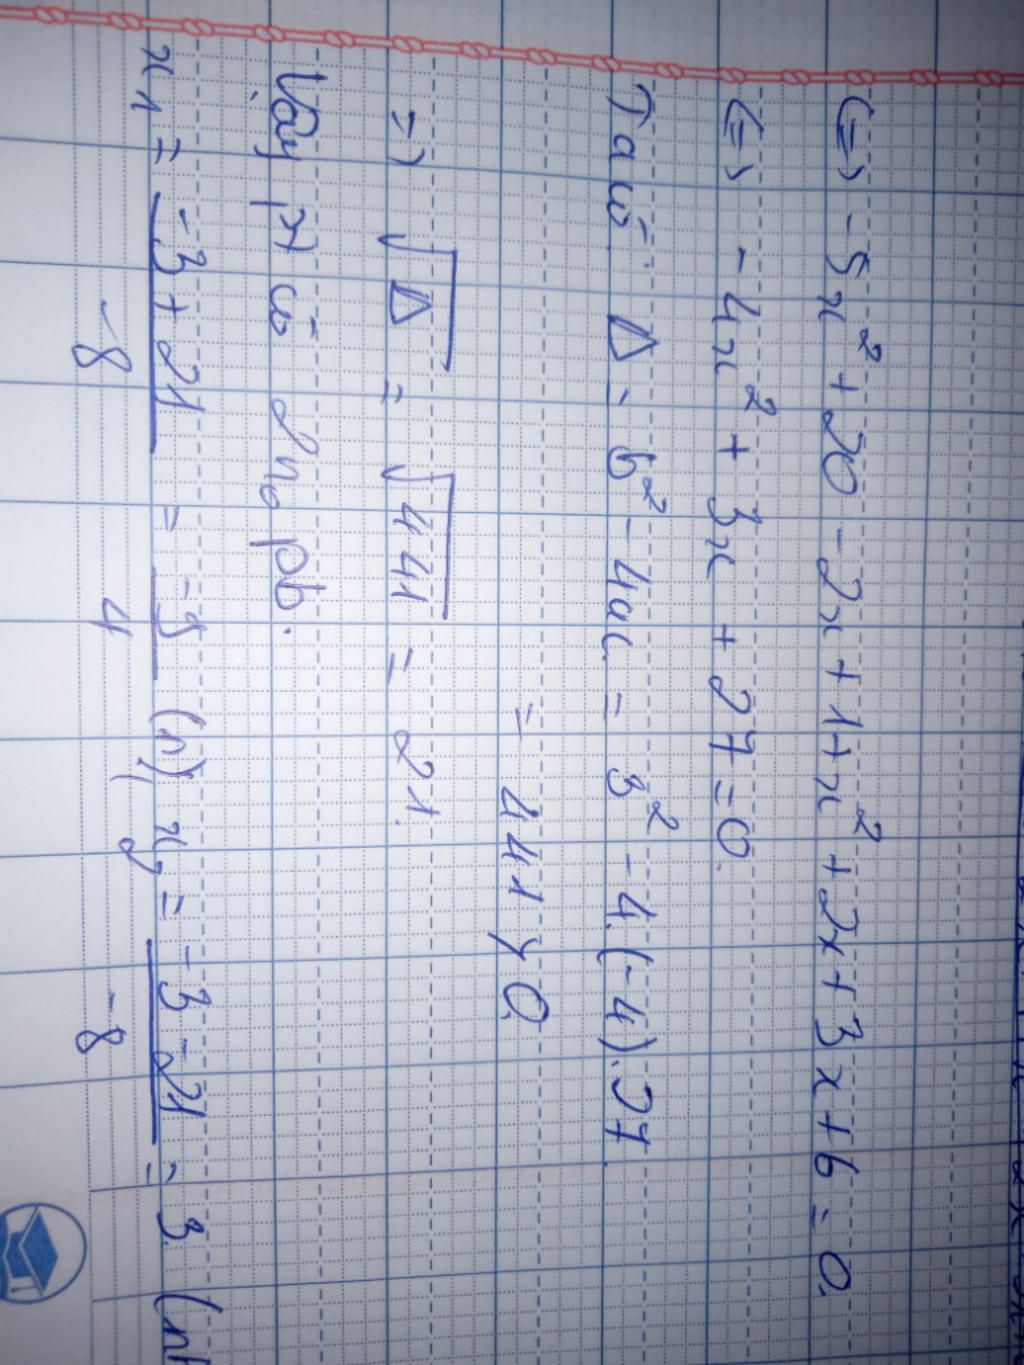 <=> -5x² + 20 - 2x + 1 + x² + 2x + 3x + 6 = 0
<=> -4x² + 3x + 27 = 0.
Ta có: Δ = b² - 4ac = 3² - 4.(-4).27
= 441 > 0
=> √Δ = √441 = 21.
Vậy pt có 2 n₀ pb.
x₁ = (-3 + 21)/(-8) = -9/4 (n), x₂ = (-3 - 21)/(-8) = 3 (n